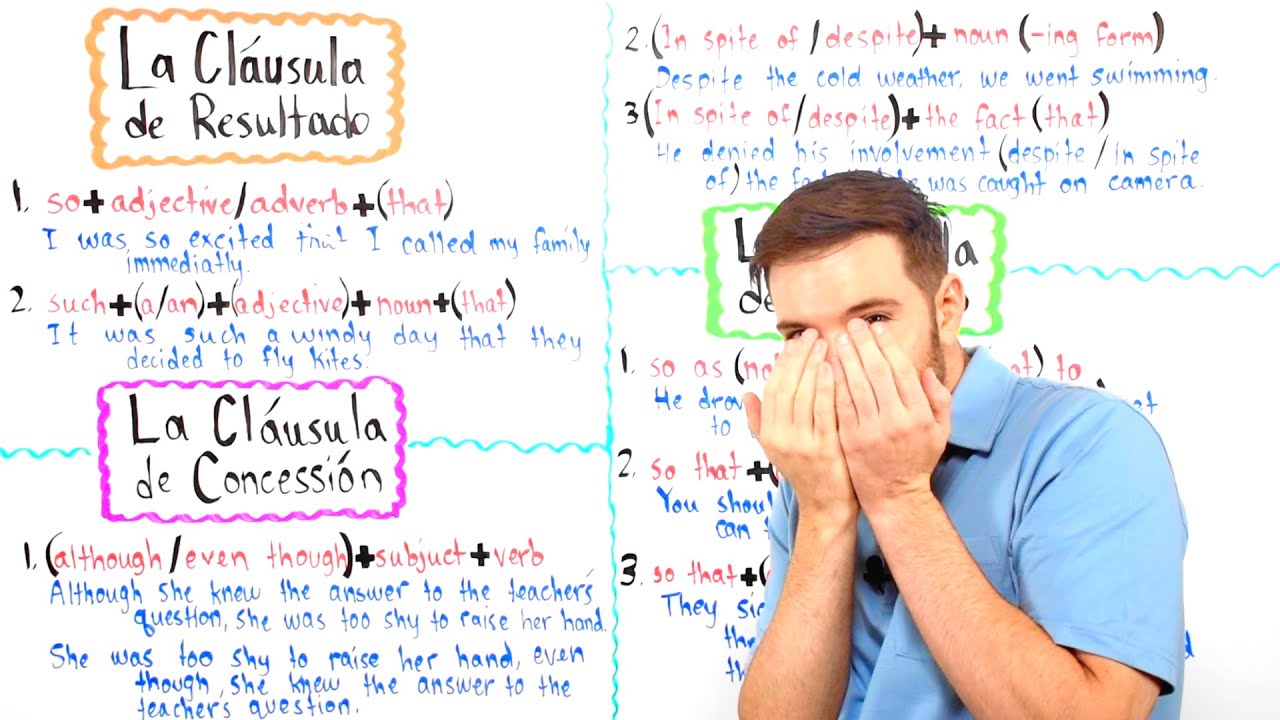 La Cláusula
de Resultado
1. so+adjective/adverb+(that)
I was so excited that I called my family
immediatly.
2. such+(a/an)+(adjective)+noun+(that)
It was such a windy day that they
decided to fly kites.
La Cláusula
de Concessión
1. (although/even though)+subjuct+verb
Although she knew the answer to the teacher's
question, she was too shy to raise her hand.
She was too shy to raise her hand, even
though, she knew the answer to the
teachers question.
2. (In spite of/despite)+noun (-ing form)
Despite the cold weather, we went swimming.
3 (In spite of/despite)+the fact (that)
He denied his involvement (despite/in spite
of) the was caught on camera.
1. so as to
He
to
2. so that+
You
can
3. so that+
They